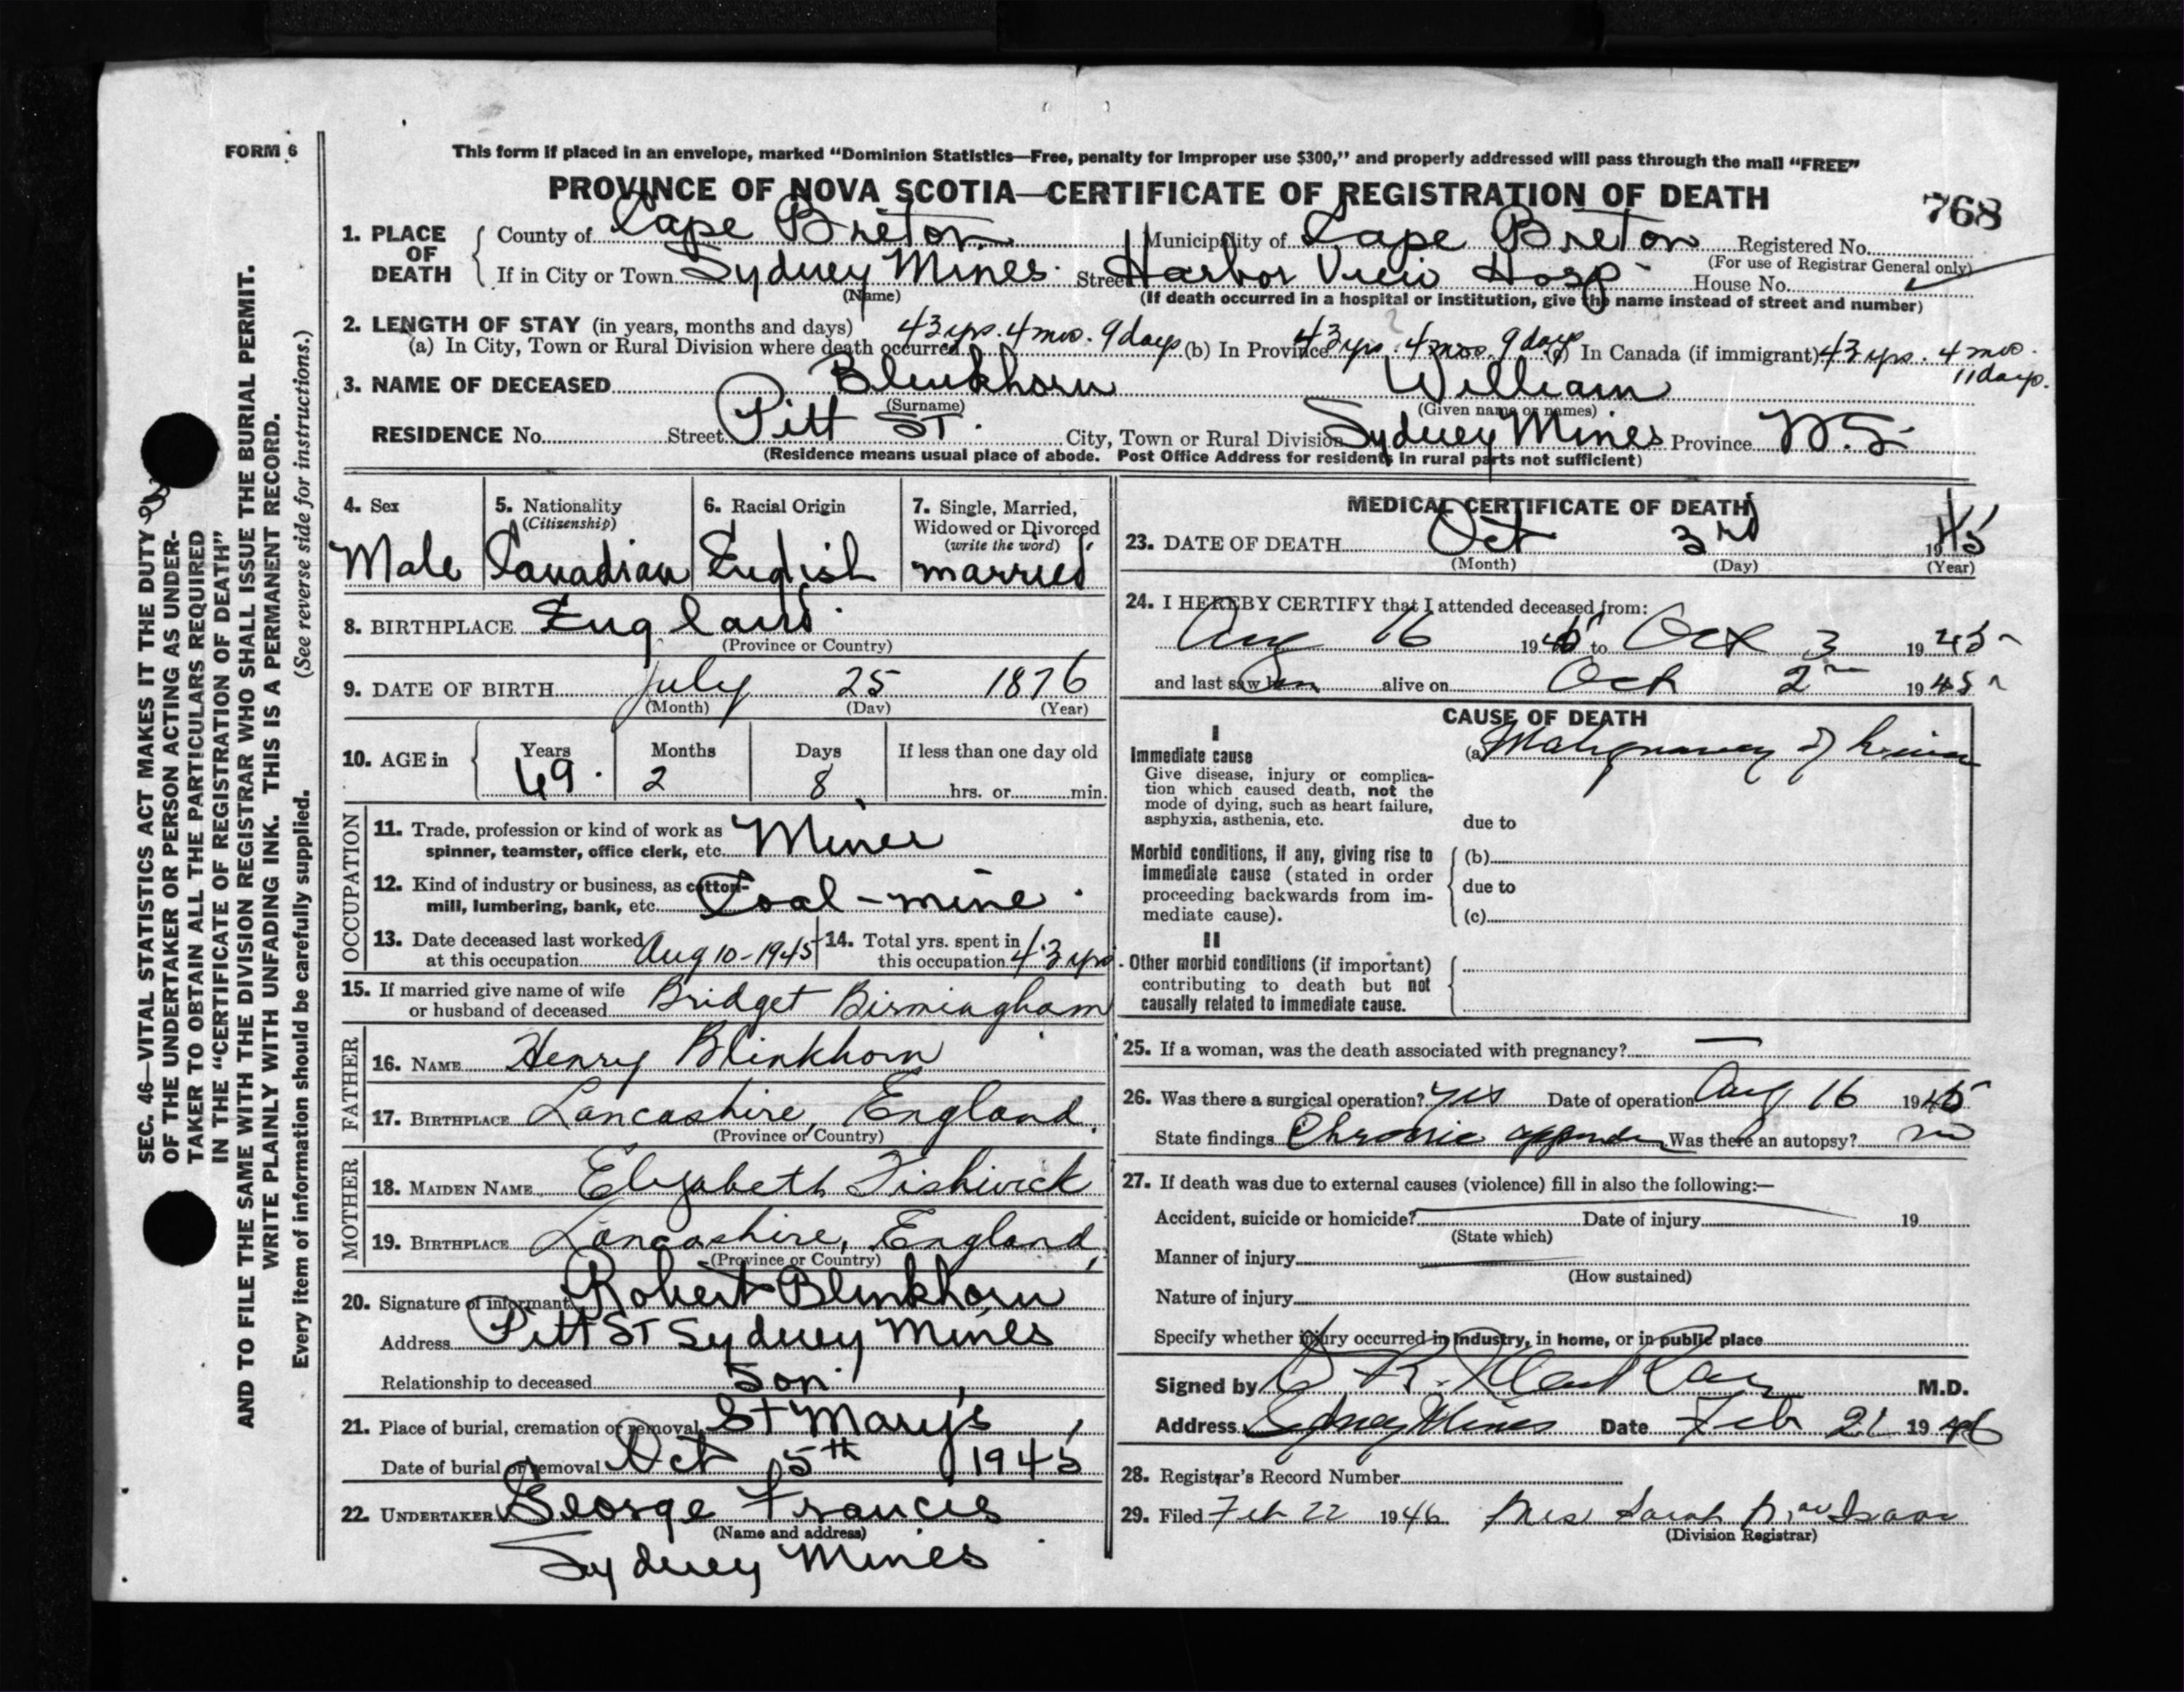 FORM 6
This form if placed in an envelope, marked “Dominion Statistics—Free, penalty for improper use $300,” and properly addressed will pass through the mail “FREE”
PROVINCE OF NOVA SCOTIA—CERTIFICATE OF REGISTRATION OF DEATH
768
1. PLACE OF DEATH
County of Cape Breton Municipality of Cape Breton Registered No.
(For use of Registrar General only)
If in City or Town Sydney Mines. Street Harbor View Hosp House No.
(Name) (If death occurred in a hospital or institution, give the name instead of street and number)
2. LENGTH OF STAY (in years, months and days)
(a) In City, Town or Rural Division where death occurred 43 yrs. 4 mos. 9 days (b) In Province 43 yrs. 4 mos. 9 days (c) In Canada (if immigrant) 43 yrs. 4 mo. 11 days.
3. NAME OF DECEASED Blinkhorn William
(Surname) (Given name or names)
RESIDENCE No. Street Pitt ST. City, Town or Rural Division Sydney Mines Province N.S.
(Residence means usual place of abode. Post Office Address for residents in rural parts not sufficient)
4. Sex
Male
5. Nationality
(Citizenship)
Canadian
6. Racial Origin
English
7. Single, Married,
Widowed or Divorced
(write the word)
married
8. BIRTHPLACE England
(Province or Country)
9. DATE OF BIRTH July 25 1876
(Month) (Day) (Year)
10. AGE in Years Months Days If less than one day old
69. 2 8 hrs. or min.
OCCUPATION
11. Trade, profession or kind of work as
spinner, teamster, office clerk, etc. Miner
12. Kind of industry or business, as cotton-
mill, lumbering, bank, etc. Coal-mine
13. Date deceased last worked
at this occupation Aug 10-1945
14. Total yrs. spent in
this occupation 43 yrs
15. If married give name of wife
or husband of deceased Bridget Birmingham
FATHER
16. NAME Henry Blinkhorn
17. BIRTHPLACE Lancashire, England.
(Province or Country)
MOTHER
18. MAIDEN NAME Elizabeth Fishwick
19. BIRTHPLACE Lancashire, England,
(Province or Country)
20. Signature of informant Robert Blinkhorn
Address Pitt ST Sydney Mines
Relationship to deceased Son
21. Place of burial, cremation or removal St Mary's
Date of burial or removal Oct 5th 1945
22. UNDERTAKER George Francis
(Name and address)
Sydney Mines
MEDICAL CERTIFICATE OF DEATH
23. DATE OF DEATH Oct 3rd 1945
(Month) (Day) (Year)
24. I HEREBY CERTIFY that I attended deceased from:
Aug 16 1945 to Oct 3 1945
and last saw him alive on Oct 2 1945
CAUSE OF DEATH
I
Immediate cause
Give disease, injury or complica-
tion which caused death, not the
mode of dying, such as heart failure,
asphyxia, asthenia, etc.
(a) Malignancy of Liver
due to
Morbid conditions, if any, giving rise to
immediate cause (stated in order
proceeding backwards from im-
mediate cause).
(b)
due to
(c)
II
Other morbid conditions (if important)
contributing to death but not
causally related to immediate cause.
25. If a woman, was the death associated with pregnancy? —
26. Was there a surgical operation? yes Date of operation Aug 16 1945
State findings Chronic Was there an autopsy? no
27. If death was due to external causes (violence) fill in also the following:—
Accident, suicide or homicide? Date of injury 19
(State which)
Manner of injury
(How sustained)
Nature of injury
Specify whether injury occurred in industry, in home, or in public place
Signed by M.D.
Address Sydney Mines Date Feb 21 1946
28. Registrar's Record Number
29. Filed Feb 22 1946 Mrs Sarah MacIsaac
(Division Registrar)
SEC. 46—VITAL STATISTICS ACT MAKES IT THE DUTY
OF THE UNDERTAKER OR PERSON ACTING AS UNDER-
TAKER TO OBTAIN ALL THE PARTICULARS REQUIRED
IN THE “CERTIFICATE OF REGISTRATION OF DEATH”
AND TO FILE THE SAME WITH THE DIVISION REGISTRAR WHO SHALL ISSUE THE BURIAL PERMIT.
WRITE PLAINLY WITH UNFADING INK. THIS IS A PERMANENT RECORD.
Every item of information should be carefully supplied. (See reverse side for instructions.)